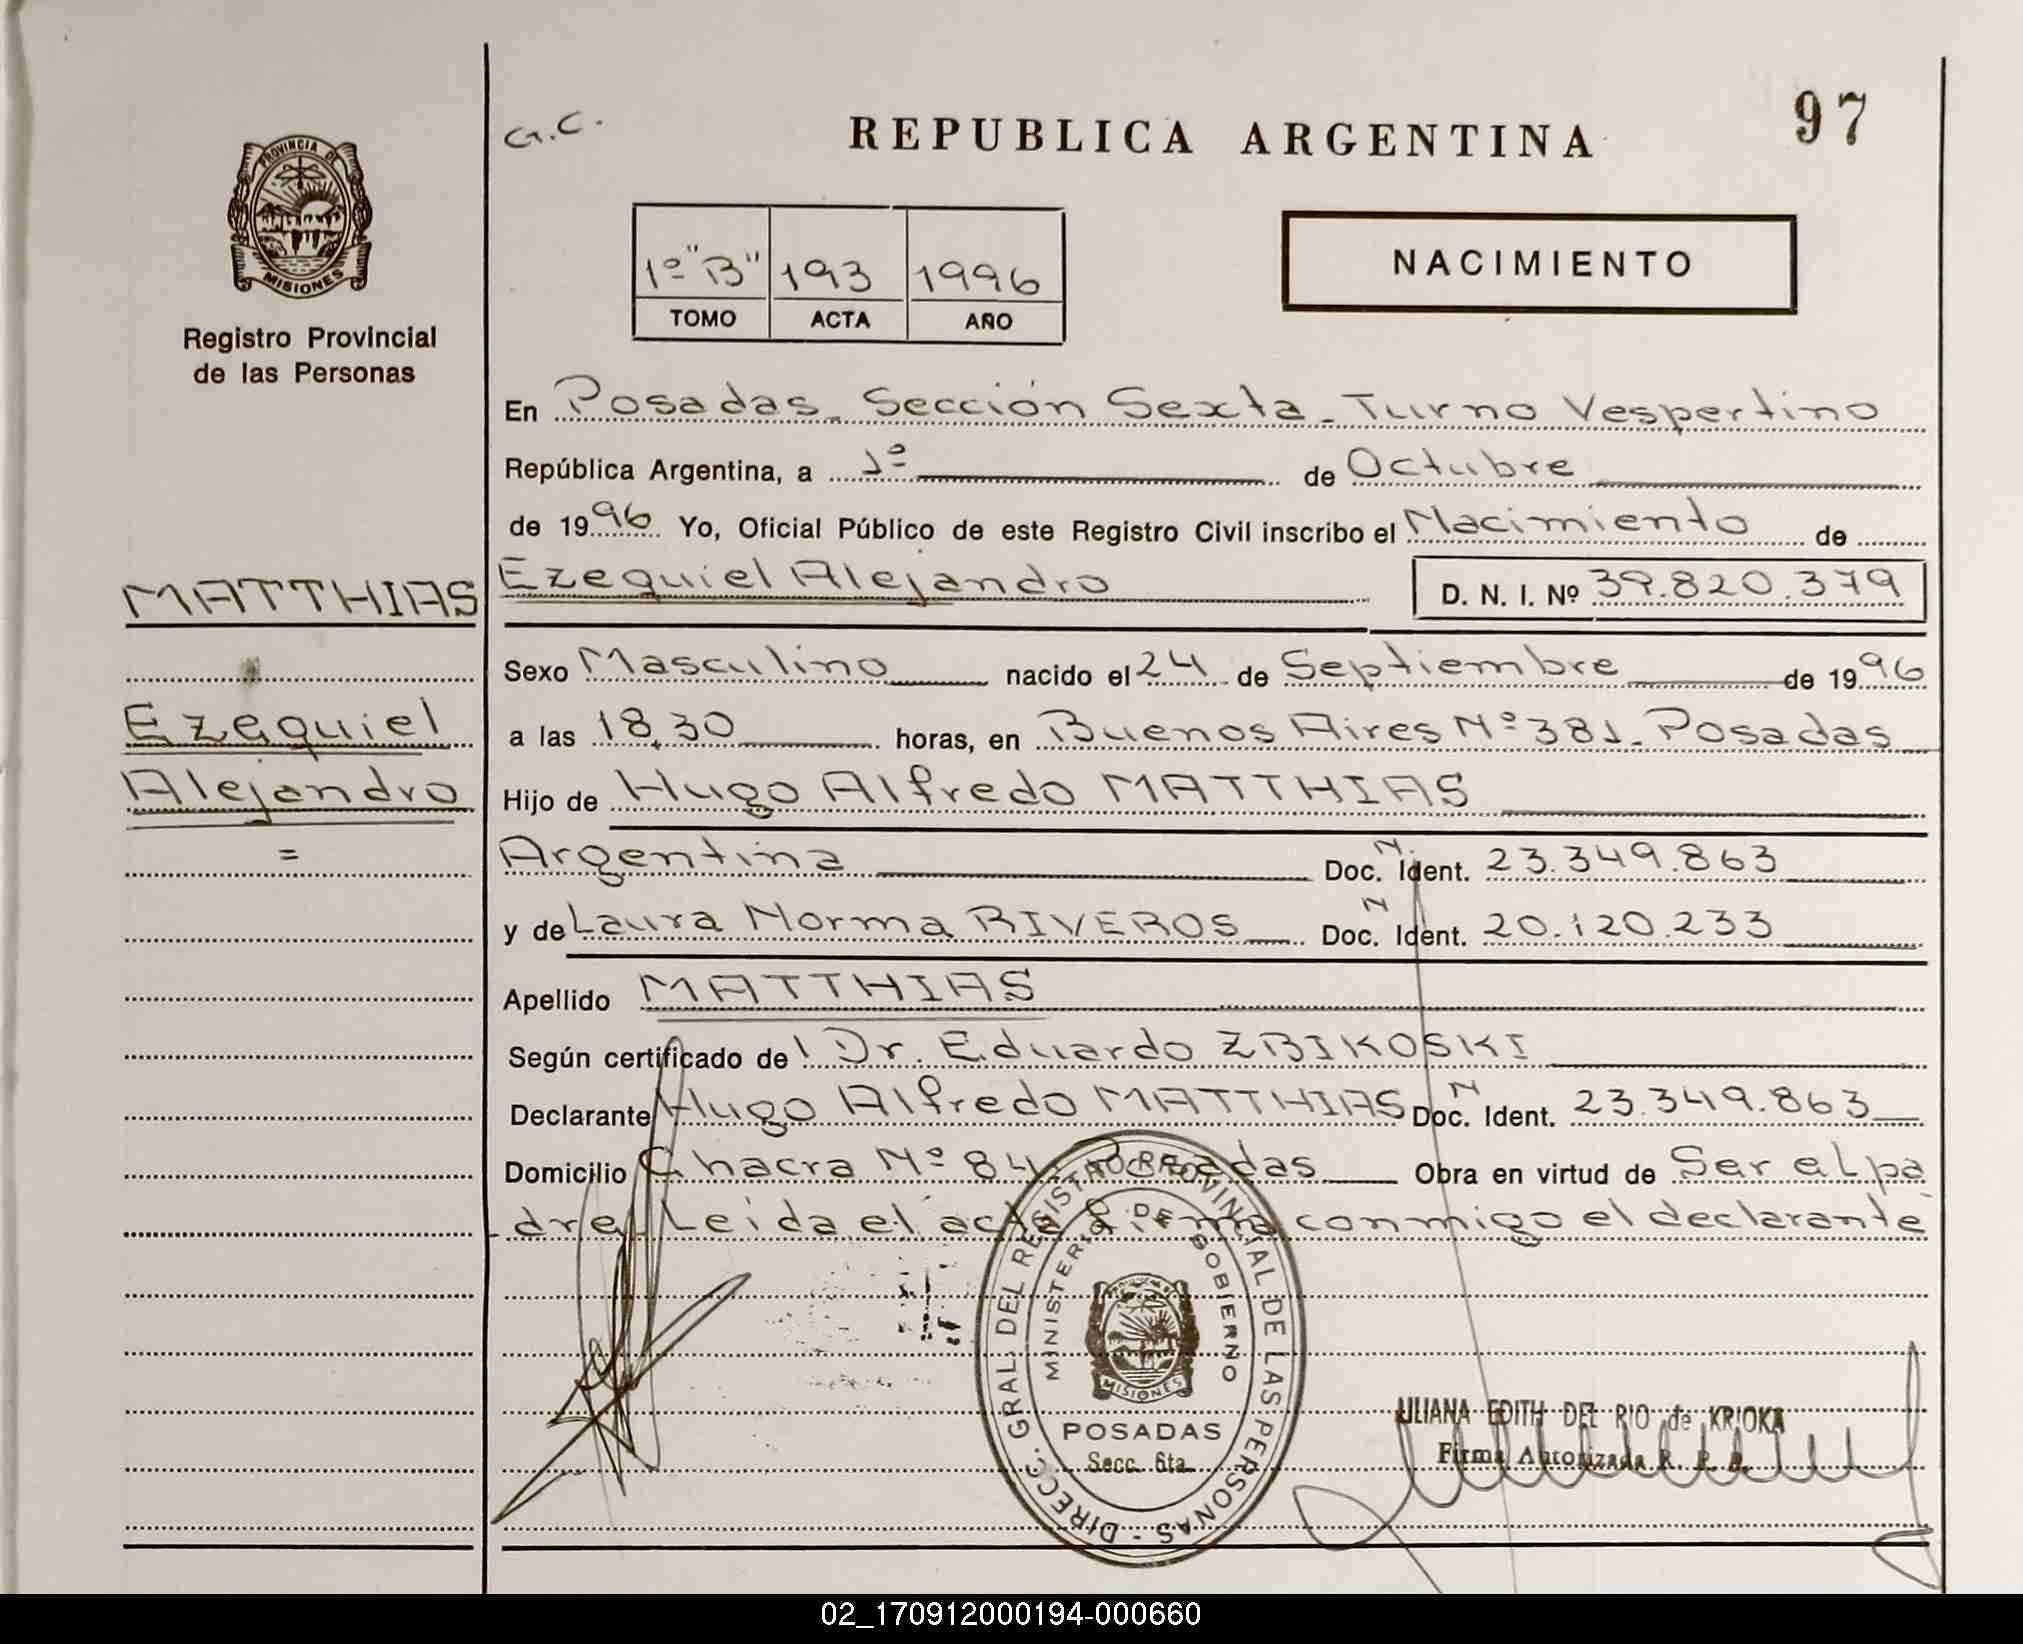 PROVINCIA DE
MISIONES
Registro Provincial
de las Personas
MATTHIAS
Ezequiel
Alejandro
=
G.C.
REPUBLICA ARGENTINA
97
1º "B" 193 1996
TOMO ACTA AÑO
NACIMIENTO
En Posadas - Sección Sexta - Turno Vespertino
República Argentina, a 1º de Octubre
de 1996 Yo, Oficial Público de este Registro Civil inscribo el Nacimiento de
Ezequiel Alejandro D. N. I. Nº 39.820.379
Sexo Masculino nacido el 24 de Septiembre de 1996
a las 18,30 horas, en Buenos Aires Nº 381 - Posadas
Hijo de Hugo Alfredo MATTHIAS
Argentina Doc. N. Ident. 23.349.863
y de Laura Norma RIVEROS Doc. N Ident. 20.120.233
Apellido MATTHIAS
Según certificado de Dr. Eduardo ZBIKOSKI
Declarante Hugo Alfredo MATTHIAS Doc. N Ident. 23.349.863
Domicilio Chacra Nº 84 - Posadas Obra en virtud de Ser el pa
dre. Leída el acta firma conmigo el declarante
DIRECC. GRAL. DEL REGISTRO PROVINCIAL DE LAS PERSONAS -
MINISTERIO DE GOBIERNO
MISIONES
POSADAS
Secc. 6ta.
LILIANA EDITH DEL RIO de KRIOKA
Firma Autorizada R. P. P.
02_170912000194-000660